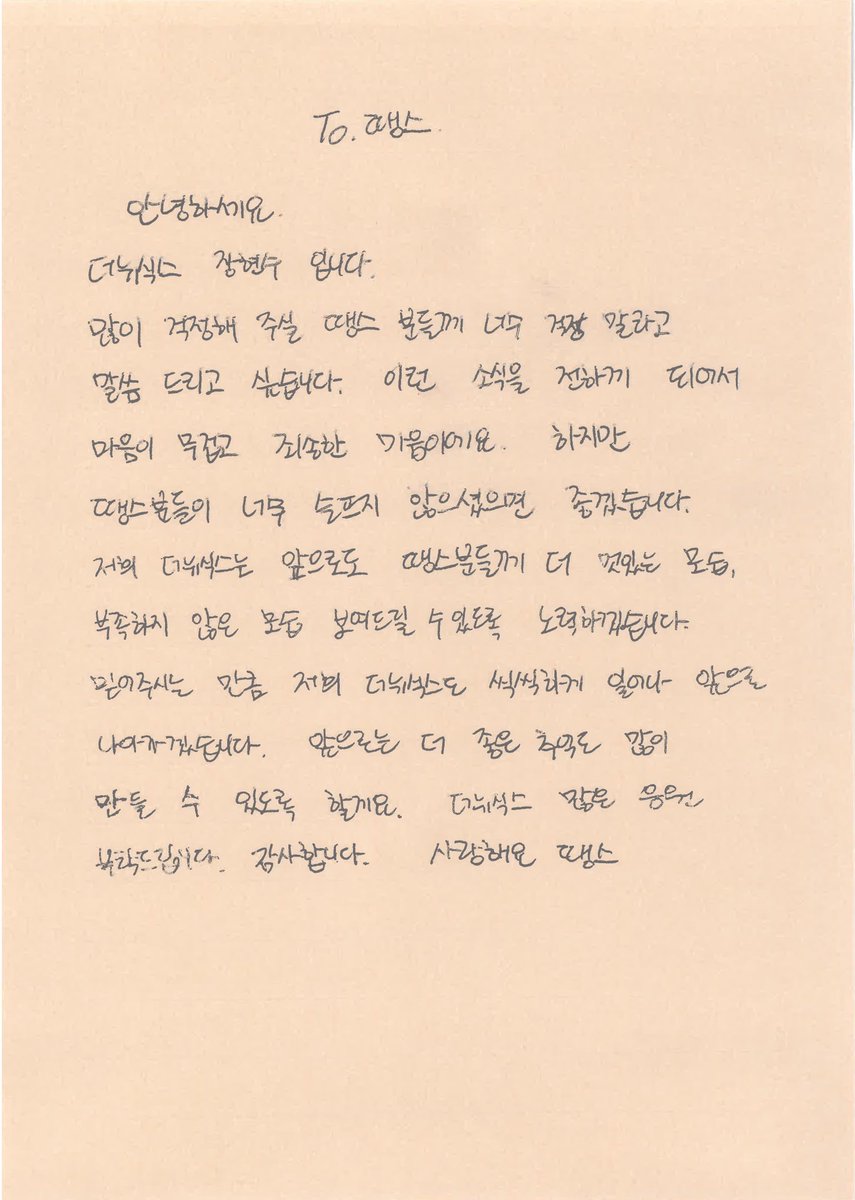 To. 땡스.
안녕하세요.
더뉴식스 장현수 입니다.
많이 걱정해 주실 땡스 분들께 너무 걱정 말라고
말씀 드리고 싶습니다. 이런 소식을 전하게 되어서
마음이 무겁고 죄송한 마음이에요. 하지만
땡스분들이 너무 슬프지 않으셨으면 좋겠습니다.
저희 더뉴식스는 앞으로도 땡스분들께 더 멋있는 모습,
부족하지 않은 모습 보여드릴 수 있도록 노력하겠습니다.
믿어주시는 만큼 저희 더뉴식스도 씩씩하게 일어나 앞으로
나아가겠습니다. 앞으로는 더 좋은 추억도 많이
만들 수 있도록 할게요. 더뉴식스 많은 응원
부탁드립니다. 감사합니다. 사랑해요 땡스